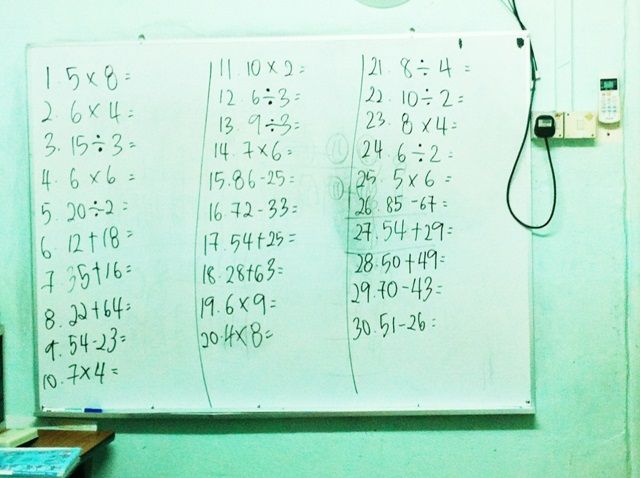 1. 5 × 8 =
2. 6 × 4 =
3. 15 ÷ 3 =
4. 6 × 6 =
5. 20 ÷ 2 =
6. 12 + 18 =
7. 35 + 16 =
8. 22 + 64 =
9. 54 - 23 =
10. 7 × 4 =
11. 10 × 2 =
12. 6 ÷ 3 =
13. 9 ÷ 3 =
14. 7 × 6 =
15. 86 - 25 =
16. 72 - 33 =
17. 54 + 25 =
18. 28 + 63 =
19. 6 × 9 =
20. 4 × 8 =
21. 8 ÷ 4 =
22. 10 ÷ 2 =
23. 8 × 4 =
24. 6 ÷ 2 =
25. 5 × 6 =
26. 85 - 67 =
27. 54 + 29 =
28. 50 + 49 =
29. 70 - 43 =
30. 51 - 26 =